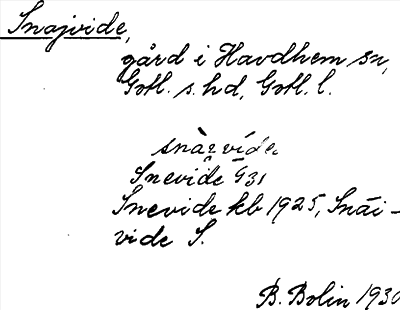 Snajvide,
gård i Havdhem sn,
Gotl. s. hd, Gotl. l.
Snevide G31
Snevide kb 1925, Snäi-
vide S.
B. Bolin 1930